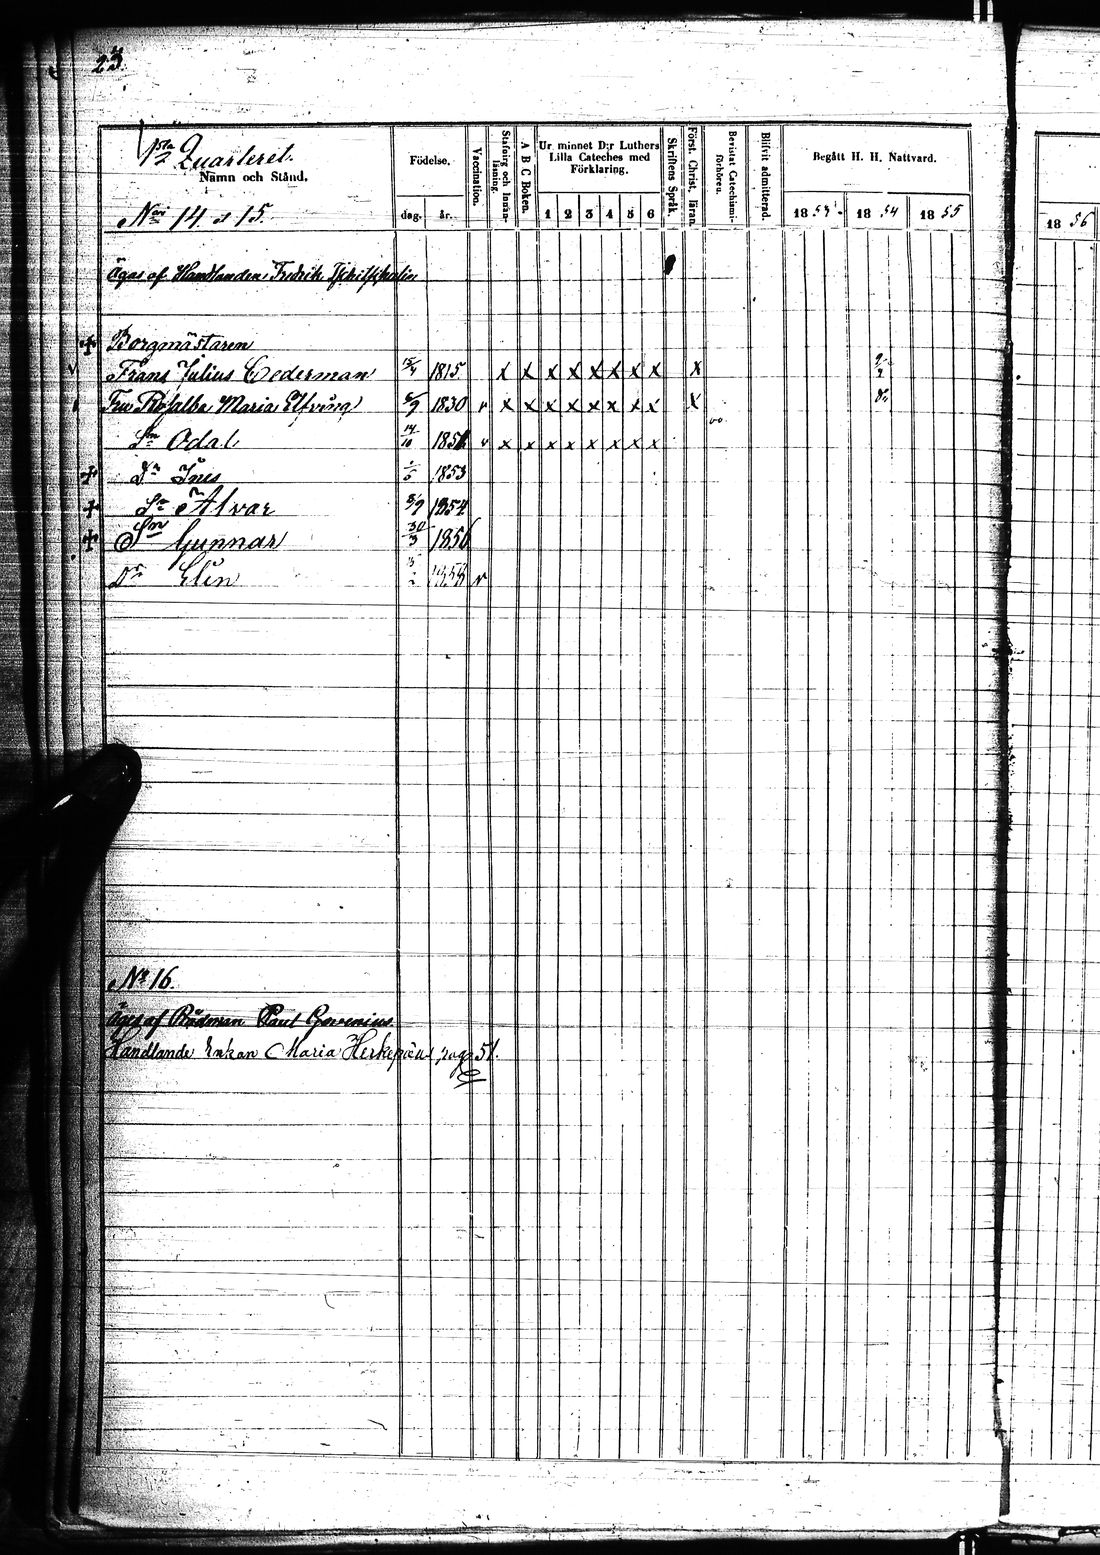 23.
1sta Quarteret.
Namn och Stånd.
Nri 14. o 15.
Födelse.
dag. år.
Vaccination.
Stafning och Innanläsning.
A B C Boken.
Ur minnet D:r Luthers Lilla Cateches med Förklaring.
1 2 3 4 5 6
Skriftens Språk.
Först. Christ. läran
Bevistat Catechumiförhören.
Blifvit admitterad.
Begått H. H. Nattvard.
18 53. 18 54 18 55
18 56
Äges af Handlanden Fredrik
Borgmästaren
Frans Julius Cederman 15/4 1815 x x x x x x x x x
Fru Rosalba Maria Elfving 1830 v x x x x x x x x x
Sn Odal 14/10 v x x x x x x x x
Dr Ines 1853
Sn Alvar 8/9 1854
Sn Gunnar 30/3 1856
Dr Elin 1858 v
No 16.
Äges af Rådman Paul
Handlande Enkan Maria pag 51.